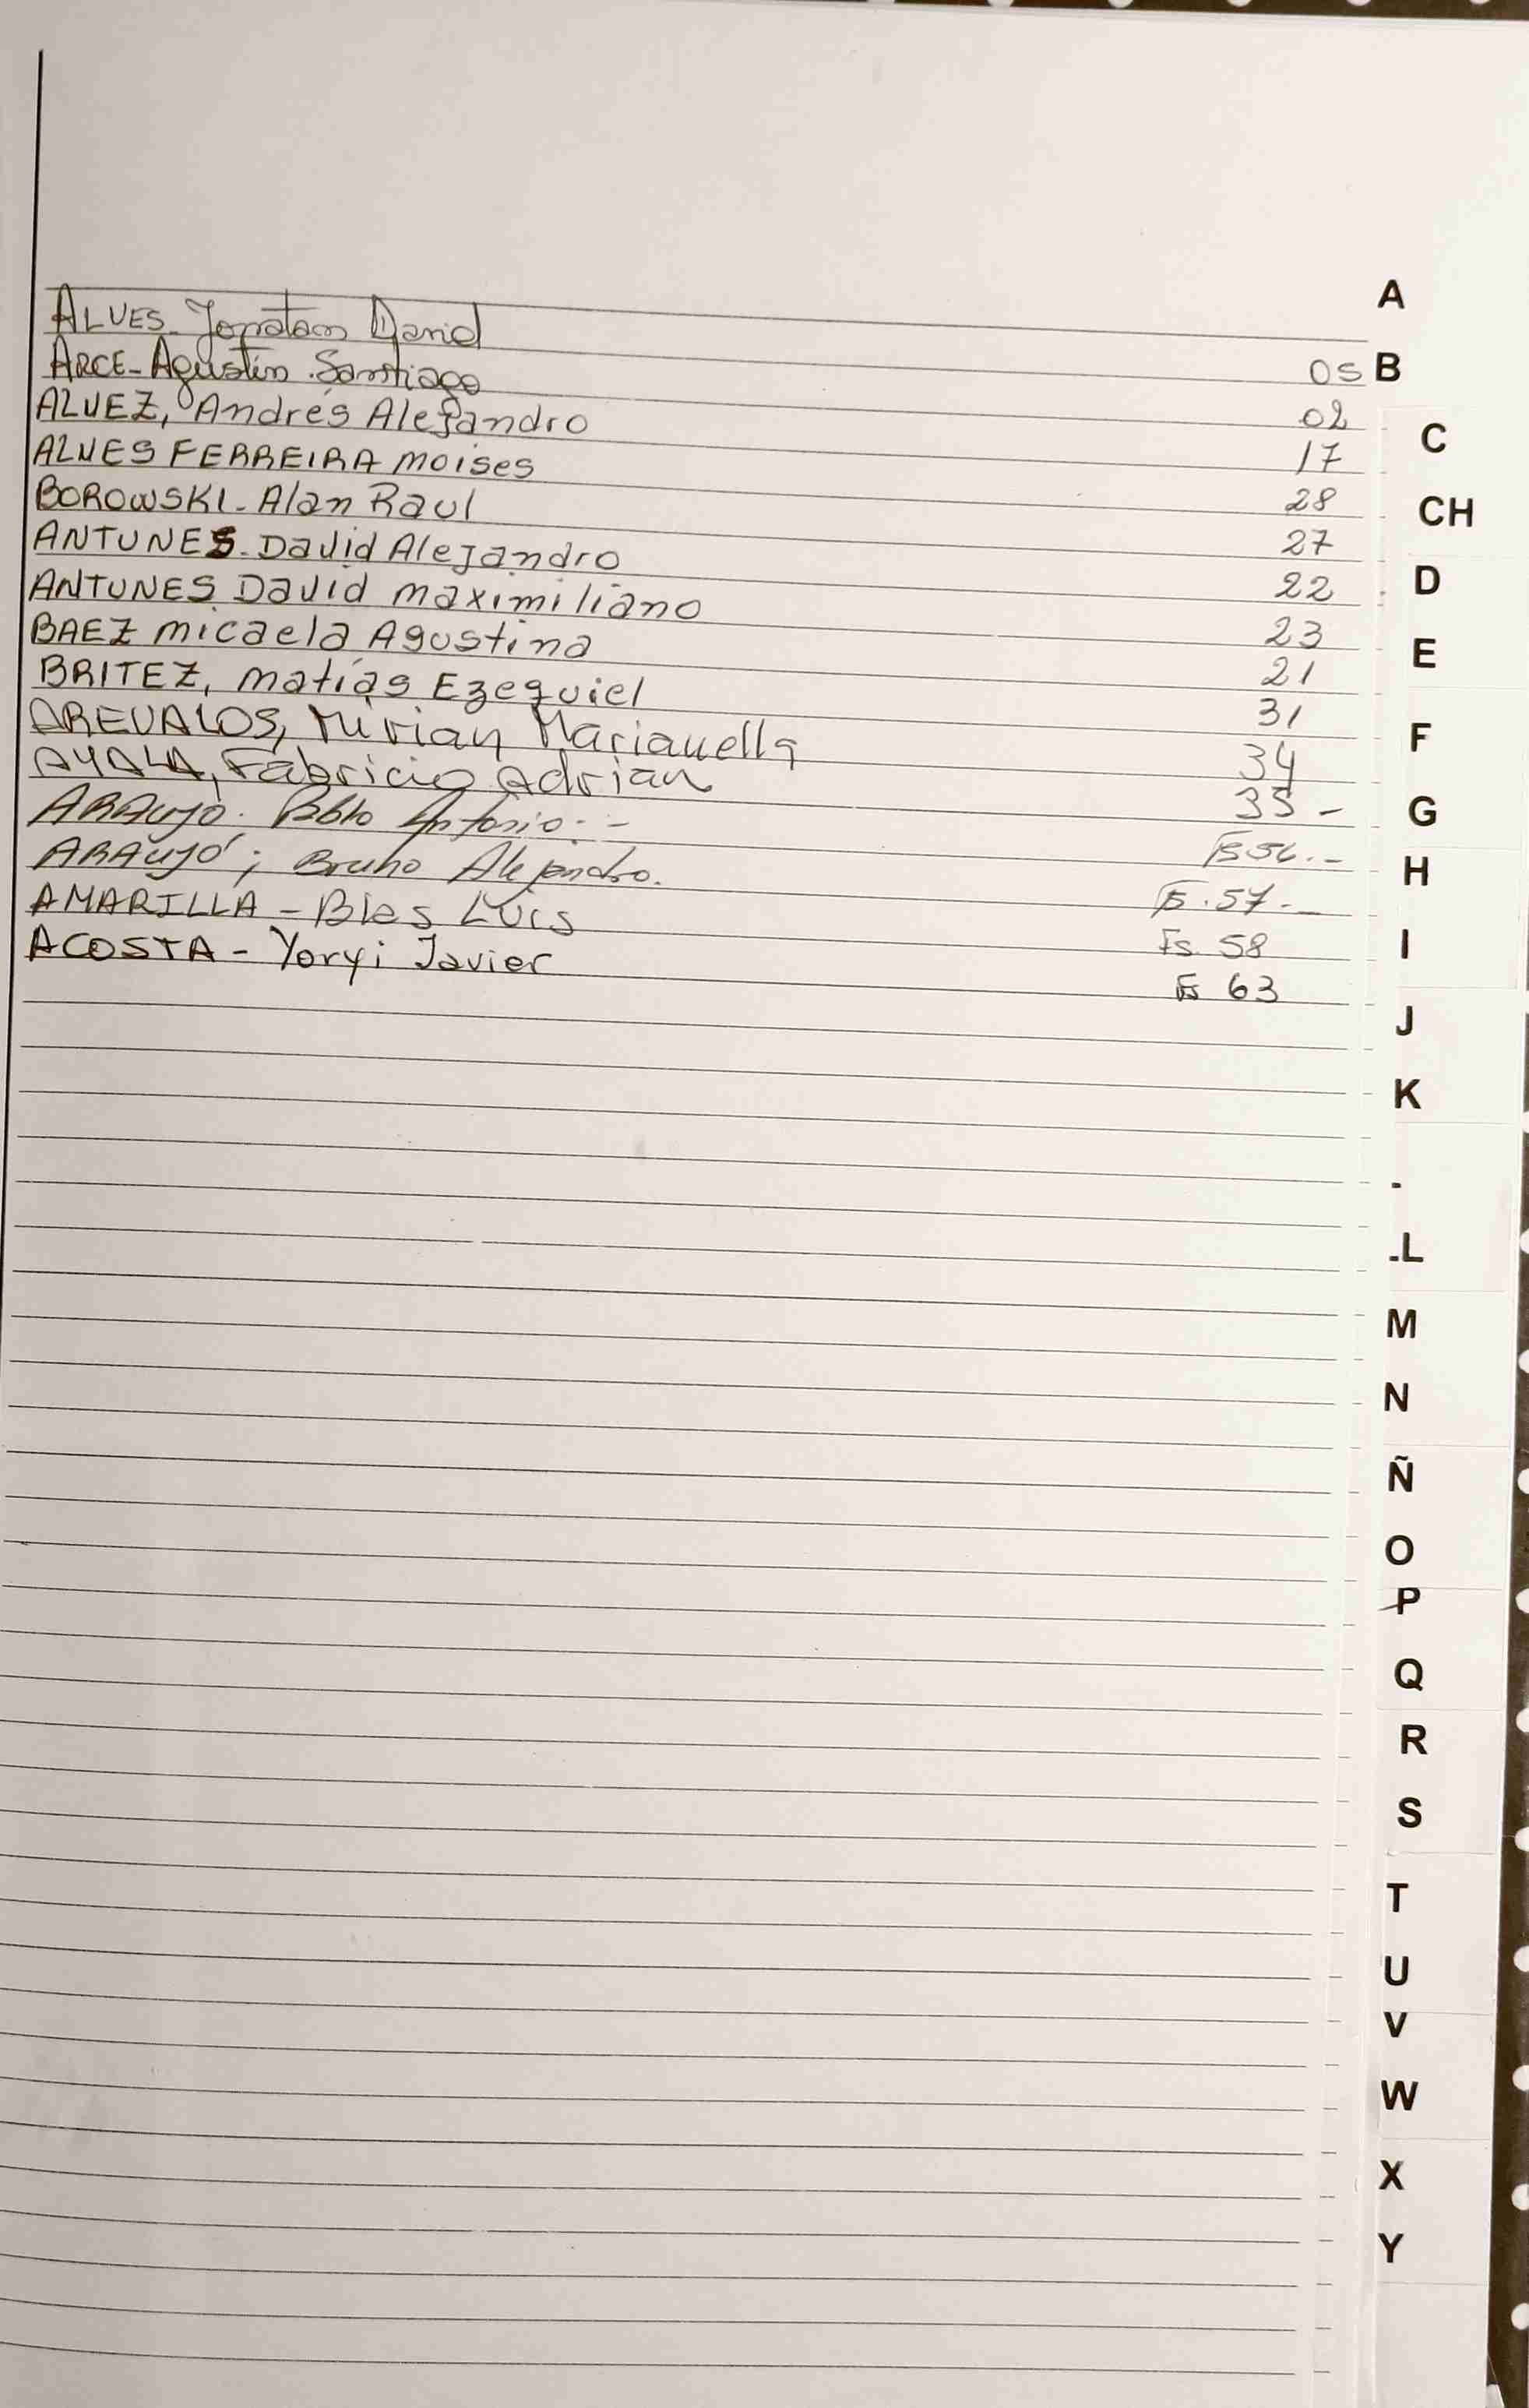 A
ALVES. Jonatan David 05
B
ARCE - Agustín. Santiago 02
ALVEZ, Andrés Alejandro 17
C
ALVES FERREIRA moises 28
CH
BOROWSKI - Alan Raul 27
ANTUNES. David Alejandro 22
D
ANTUNES David maximiliano 23
BAEZ micaela Agustina 21
E
BRITEZ, matías Ezequiel 31
AREVALOS, Mirian Marianella 34
F
AYALA, Fabricio Adrian 35 -
G
ARAUJO. Pablo Antonio. - Fs 56. -
H
ARAUJO; Bruno Alejandro. Fs. 57. -
AMARILLA - Blas Luis Fs 58
I
ACOSTA - Yoryi Javier Fs 63
J
K
L
M
N
Ñ
O
P
Q
R
S
T
U
V
W
X
Y